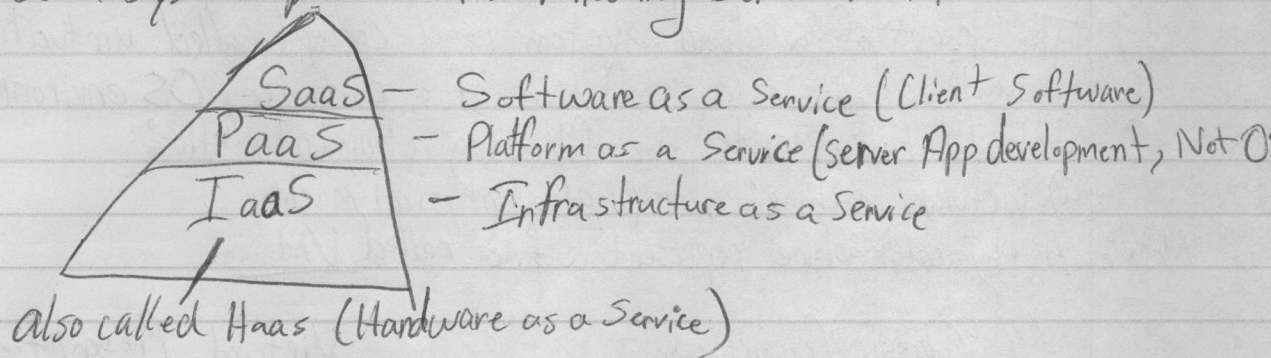 SaaS – Software as a Service (Client Software)
PaaS – Platform as a Service (server App development, Not
IaaS – Infrastructure as a Service
also called Haas (Hardware as a Service)